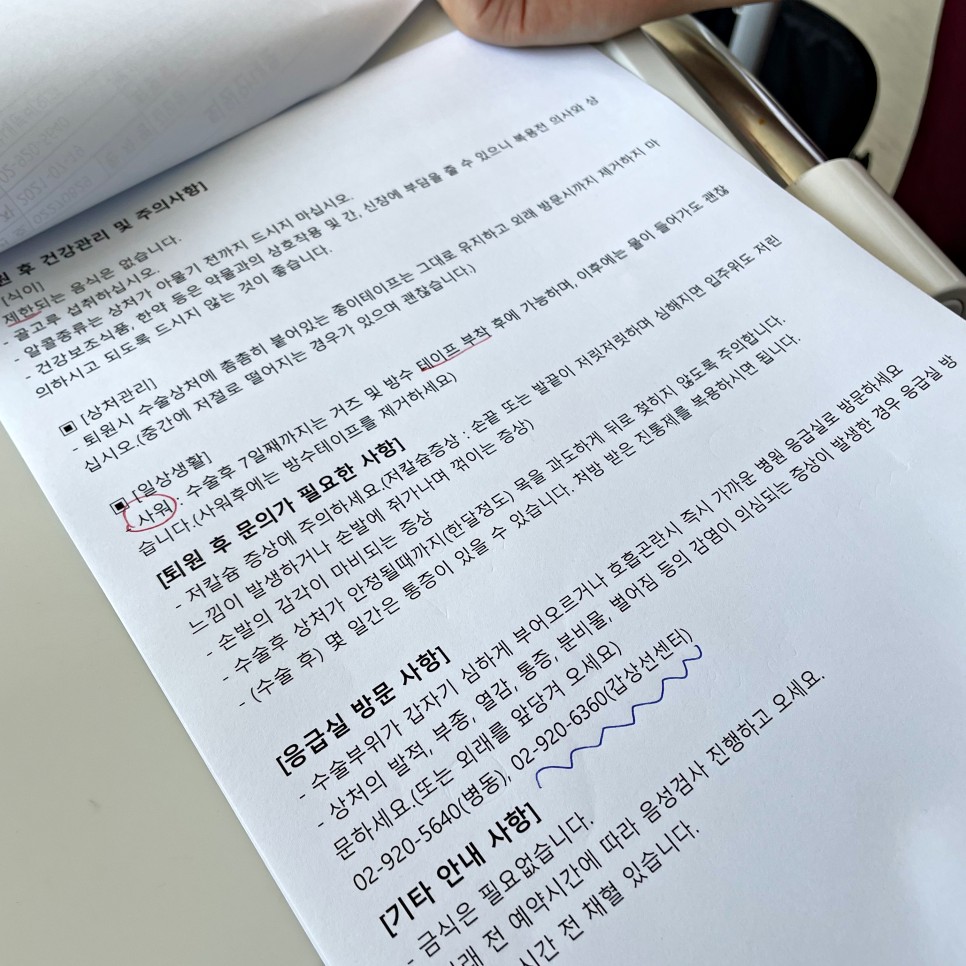 원 후 건강관리 및 주의사항]
[식이]
제한되는 음식은 없습니다.
- 골고루 섭취하십시오.
- 알콜종류는 상처가 아물기 전까지 드시지 마십시오.
- 건강보조식품, 한약 등은 약물과의 상호작용 및 간, 신장에 부담을 줄 수 있으니 복용전 의사와 상
의하시고 되도록 드시지 않는 것이 좋습니다.
▣ [상처관리]
- 퇴원시 수술상처에 촘촘히 붙어있는 종이테이프는 그대로 유지하고 외래 방문시까지 제거하지 마
십시오.(중간에 저절로 떨어지는 경우가 있으며 괜찮습니다.)
▣ [일상생활]
샤워 : 수술후 7일째까지는 거즈 및 방수 테이프 부착 후에 가능하며, 이후에는 물이 들어가도 괜찮
습니다.(샤워후에는 방수테이프를 제거하세요)
[퇴원 후 문의가 필요한 사항]
- 저칼슘 증상에 주의하세요.(저칼슘증상 : 손끝 또는 발끝이 저릿저릿하며 심해지면 입주위도 저린
느낌이 발생하거나 손발에 쥐가나며 꺾이는 증상)
- 손발의 감각이 마비되는 증상
- 수술후 상처가 안정될때까지(한달정도) 목을 과도하게 뒤로 젖히지 않도록 주의합니다.
- (수술 후) 몇 일간은 통증이 있을 수 있습니다. 처방 받은 진통제를 복용하시면 됩니다.
[응급실 방문 사항]
- 수술부위가 갑자기 심하게 부어오르거나 호흡곤란시 즉시 가까운 병원 응급실로 방문하세요
- 상처의 발적, 부종, 열감, 통증, 분비물, 벌어짐 등의 감염이 의심되는 증상이 발생한 경우 응급실 방
문하세요.(또는 외래를 앞당겨 오세요)
02-920-5640(병동), 02-920-6360(갑상선센터)
[기타 안내 사항]
- 금식은 필요없습니다.
래 전 예약시간에 따라 음성검사 진행하고 오세요.
시간 전 채혈 있습니다.